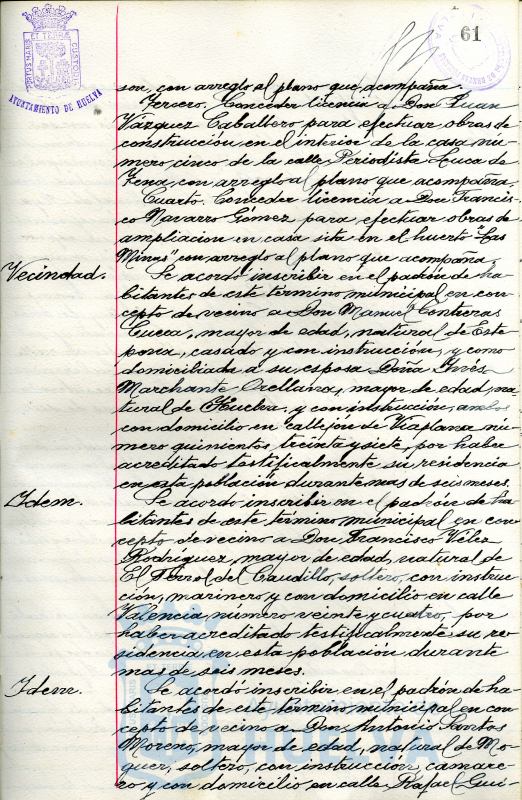 61
PORTUS MARIS ET TERRAE CUSTODIA
AYUNTAMIENTO DE HUELVA
son, con arreglo al plano que acompaña.
Tercero. Conceder licencia a Don Juan
Vázquez Caballero para efectuar obras de
construcción en el interior de la casa nú-
mero cinco de la calle Periodista Luca de
Tena, con arreglo al plano que acompaña.
Cuarto. Conceder licencia a Don Francis-
co Navarro Gómez para efectuar obras de
ampliacion en casa sita en el huerto "Las
Minas" con arreglo al plano que acompaña.
Vecindad.
Se acordó inscribir en el padrón de ha-
bitantes de este termino municipal en con-
cepto de vecino a Don Manuel Contreras
Cueca, mayor de edad, natural de Este-
pona, casado y con instrucción, y como
domiciliada a su esposa Doña Inés
Marchante Orellana, mayor de edad, na-
tural de Huelva, y con instrucción, ambos
con domicilio en callejón de Viaplana nú-
mero quinientos treinta y siete, por haber
acreditado testificalmente su residencia
en esta población durante mas de seis meses.
Idem.
Se acordó inscribir en el padrón de ha-
bitantes de este término municipal en con-
cepto de vecino a Don Francisco Vélez
Rodríguez, mayor de edad, natural de
El Ferrol del Caudillo, soltero, con instruc-
ción, marinero y con domicilio en calle
Valencia, número veinte y cuatro, por
haber acreditado testificalmente su re-
sidencia en esta población durante
mas de seis meses.
Idem.
Se acordó inscribir en el padrón de ha-
bitantes de este término municipal en con-
cepto de vecino a Don Antonio Santos
Moreno, mayor de edad, natural de Mo-
guer, soltero, con instrucción, camare-
ro y con domicilio en calle Rafael Gui-